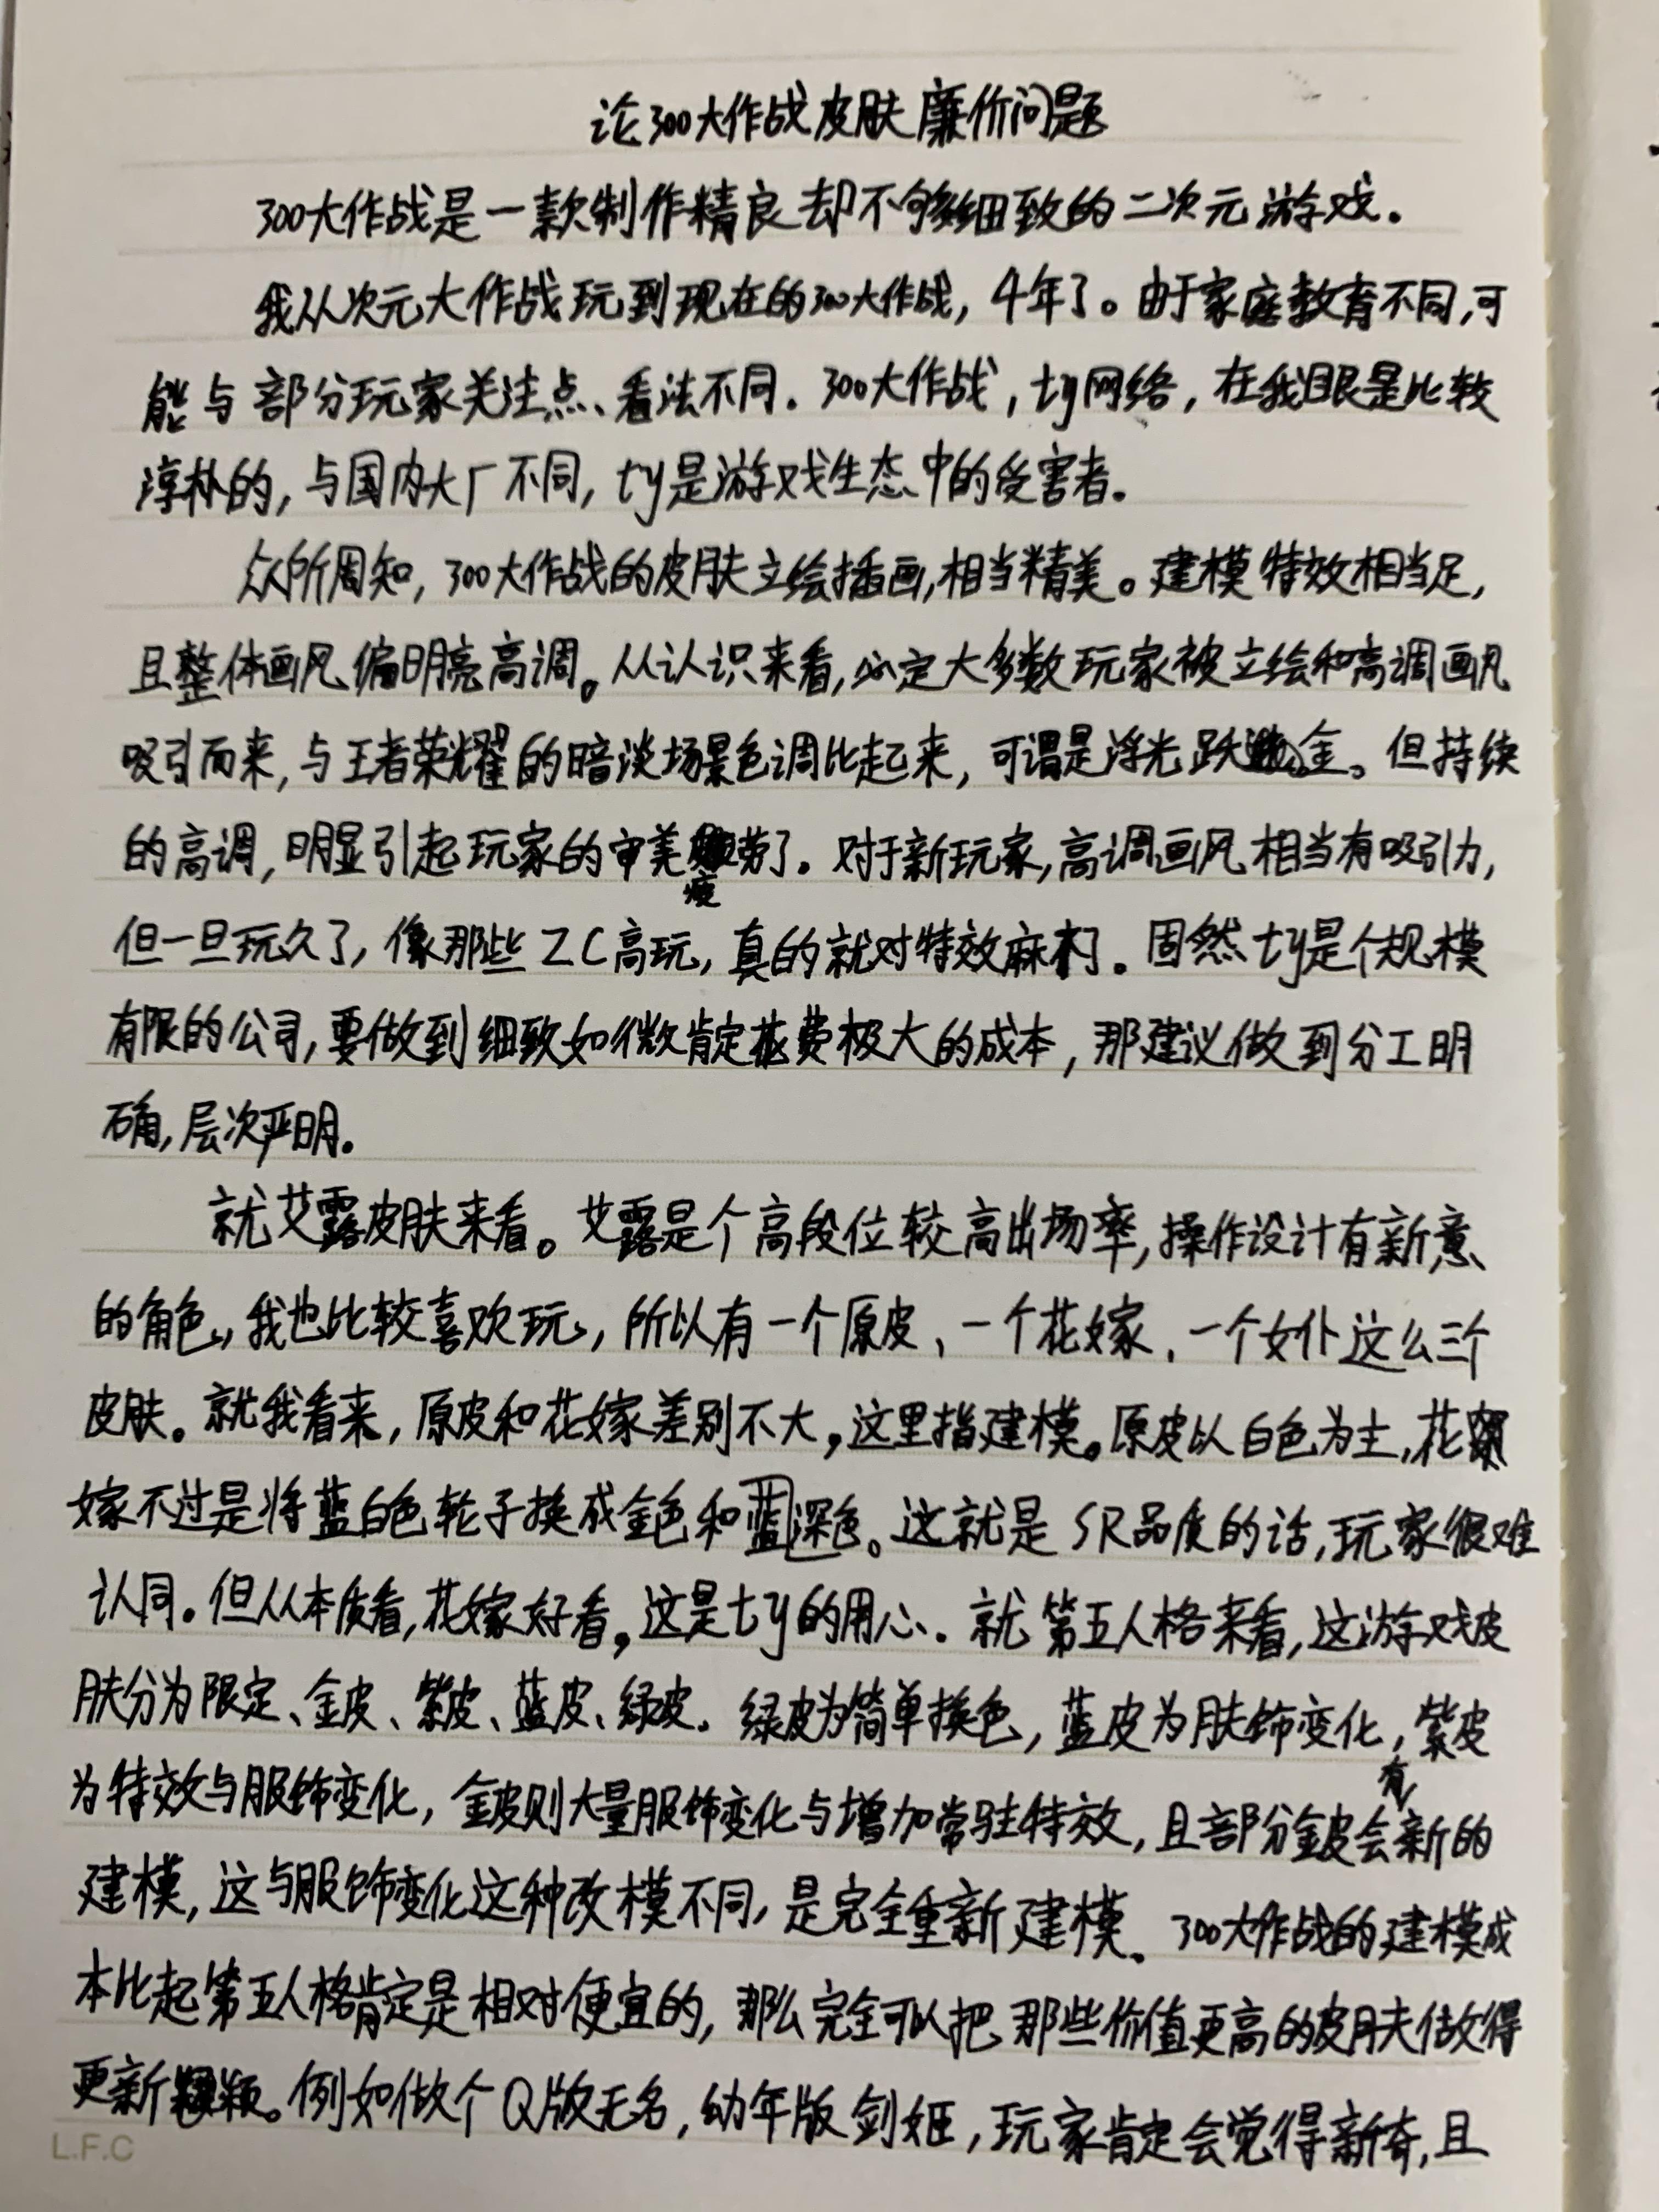 论300大作战皮肤廉价问题
300大作战是一款制作精良却不够细致的二次元游戏.
我从次元大作战玩到现在的300大作战,4年了。由于家庭教育不同,可
能与部分玩家关注点、看法不同.300大作战,ty网络,在我眼是比较
淳朴的,与国内大厂不同,ty是游戏生态中的受害者.
众所周知,300大作战的皮肤立绘插画,相当精美。建模特效相当足,
且整体画风偏明亮高调。从认识来看,必定大多数玩家被立绘和高调画风
吸引而来,与王者荣耀的暗淡场景色调比起来,可谓是浮光跃金。但持续
的高调,明显引起玩家的审美疲劳了.对于新玩家,高调画风相当有吸引力,
但一旦玩久了,像那些ZC高玩,真的就对特效麻木了.固然ty是个规模
有限的公司,要做到细致如微肯定花费极大的成本,那建议做到分工明
确,层次严明.
就艾露皮肤来看。艾露是个高段位较高出场率,操作设计有新意
的角色,我也比较喜欢玩,所以有一个原皮、一个花嫁、一个女仆这么三个
皮肤。就我看来,原皮和花嫁差别不大,这里指建模。原皮以白色为主,花
嫁不过是将蓝白色轮子换成金色和蓝深色。这就是SR品质的话,玩家很难
认同.但从本质看,花嫁好看,这是ty的用心.就第五人格来看,这游戏皮
肤分为限定、金皮、紫皮、蓝皮、绿皮.绿皮为简单换色,蓝皮为肤饰变化,紫皮
为特效与服饰变化,金皮则大量服饰变化与增加常驻特效,且部分金皮会有新的
建模,这与服饰变化这种改模不同,是完全重新建模、300大作战的建模成
本比起第五人格肯定是相对便宜的,那么完全可以把那些价值更高的皮肤做得
更新颖。例如做个Q版无名,幼年版剑姬,玩家肯定会觉得新奇,且
L.F.C